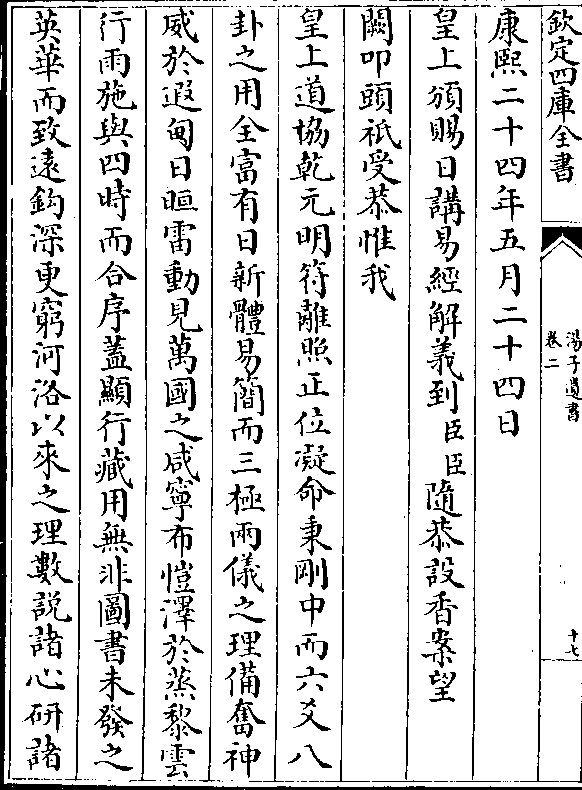 欽定四庫全書
湯子遺書
卷二
十七
康熙二十四年五月二十四日
皇上頒賜日講易經解義到臣臣隨恭設香案望
闕叩頭祗受恭惟我
皇上道協乾元明符離照正位凝命秉剛中而六爻八
卦之用全富有日新體易簡而三極兩儀之理備奮神
威於遐甸日晅雷動見萬國之咸寧布愷澤於蒸黎雲
行雨施與四時而合序蓋顯行藏用無非圖書未發之
英華而致遠鈎深更窮河洛以來之理數説諸心研諸